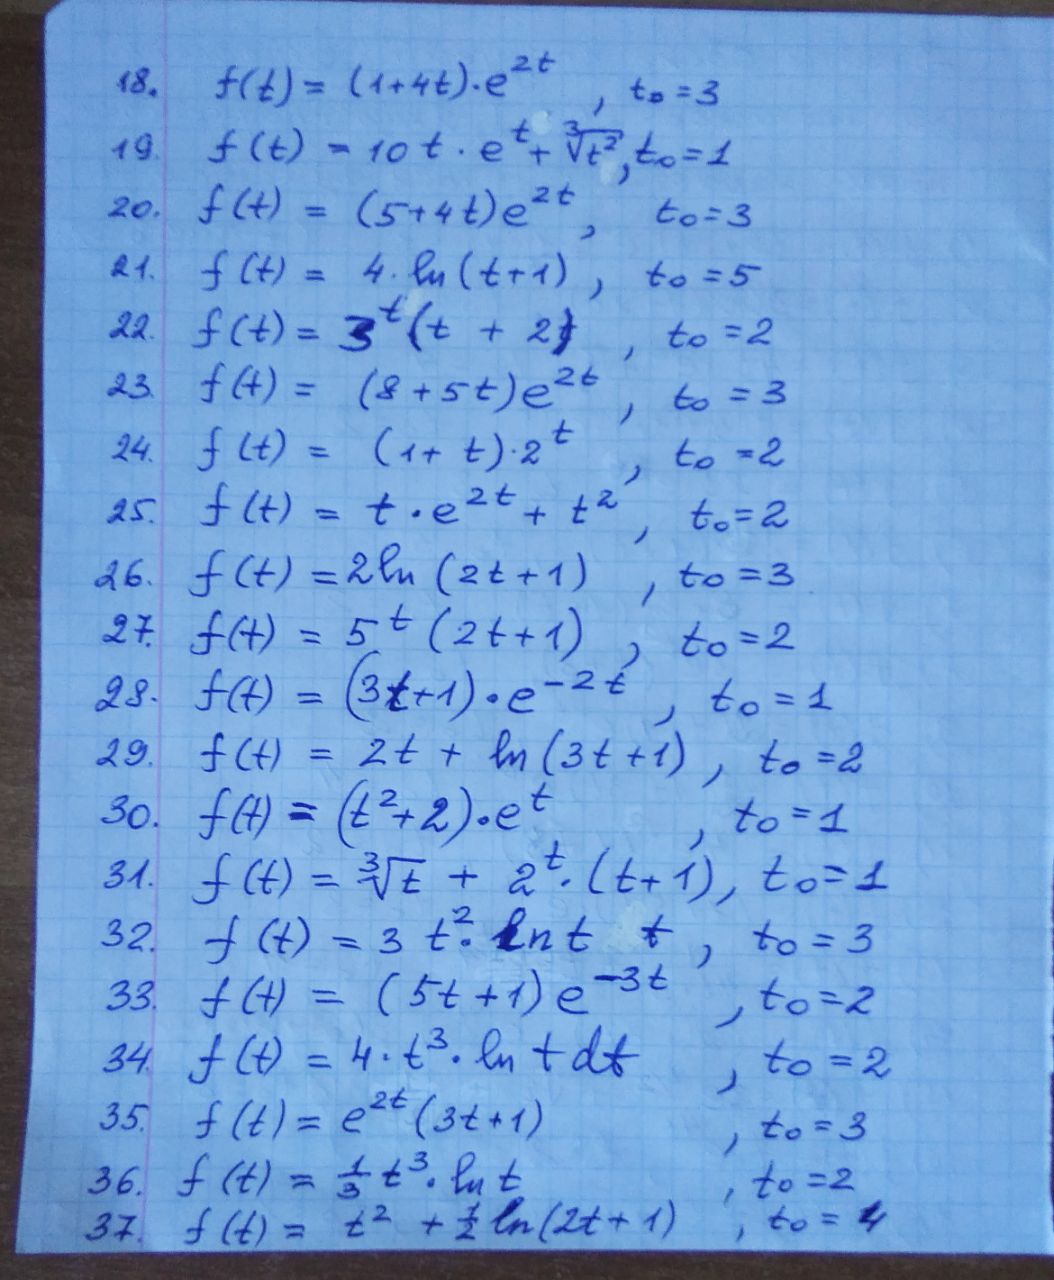 18. f(t) = (1+4t)·e^2t, t₀=3
19. f(t) = 10t·e^t + ∛t², t₀=1
20. f(t) = (5+4t)e^2t, t₀=3
21. f(t) = 4·ln(t+1), t₀=5
22. f(t) = 3^t(t + 2), t₀=2
23. f(t) = (8+5t)e^2t, t₀=3
24. f(t) = (1+t)·2^t, t₀=2
25. f(t) = t·e^2t + t², t₀=2
26. f(t) = 2ln(2t+1), t₀=3
27. f(t) = 5^t(2t+1), t₀=2
28. f(t) = (3t+1)·e^-2t, t₀=1
29. f(t) = 2t + ln(3t+1), t₀=2
30. f(t) = (t²+2)·e^t, t₀=1
31. f(t) = ∛t + 2^t·(t+1), t₀=1
32. f(t) = 3t²·ln t t, t₀=3
33. f(t) = (5t+1)e^-3t, t₀=2
34. f(t) = 4·t³·ln t dt, t₀=2
35. f(t) = e^2t(3t+1), t₀=3
36. f(t) = 1/3 t³·ln t, t₀=2
37. f(t) = t² + 1/2 ln(2t+1), t₀=4